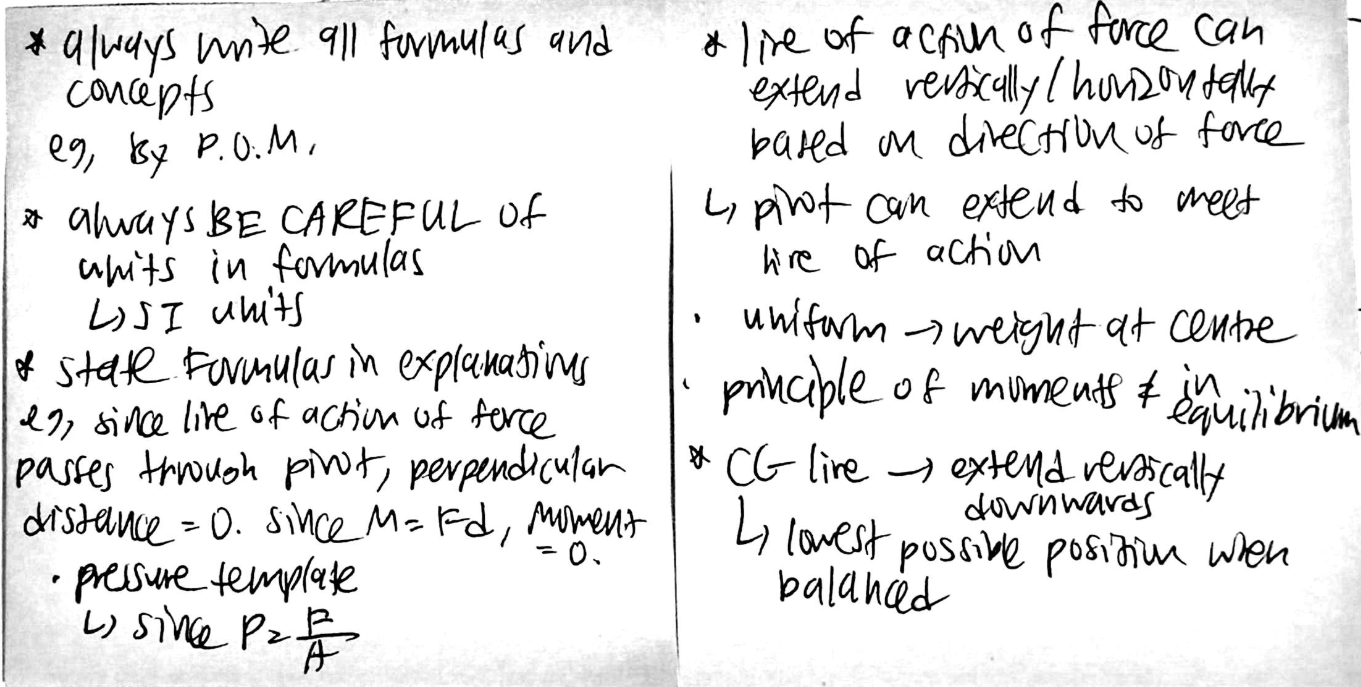 * always write all formulas and
concepts
eg, By P.O.M.
* always BE CAREFUL of
units in formulas
↳ SI units
* state formulas in explanations
eg, since line of action of force
passes through pivot, perpendicular
distance = 0. since M = Fd, moment
= 0.
• pressure template
↳ since P = F/A
* line of action of force can
extend vertically / horizontally
based on direction of force
↳ pivot can extend to meet
line of action
• uniform → weight at centre
• principle of moments ≠ in
equilibrium
* CG line → extend vertically
downwards
↳ lowest possible position when
balanced